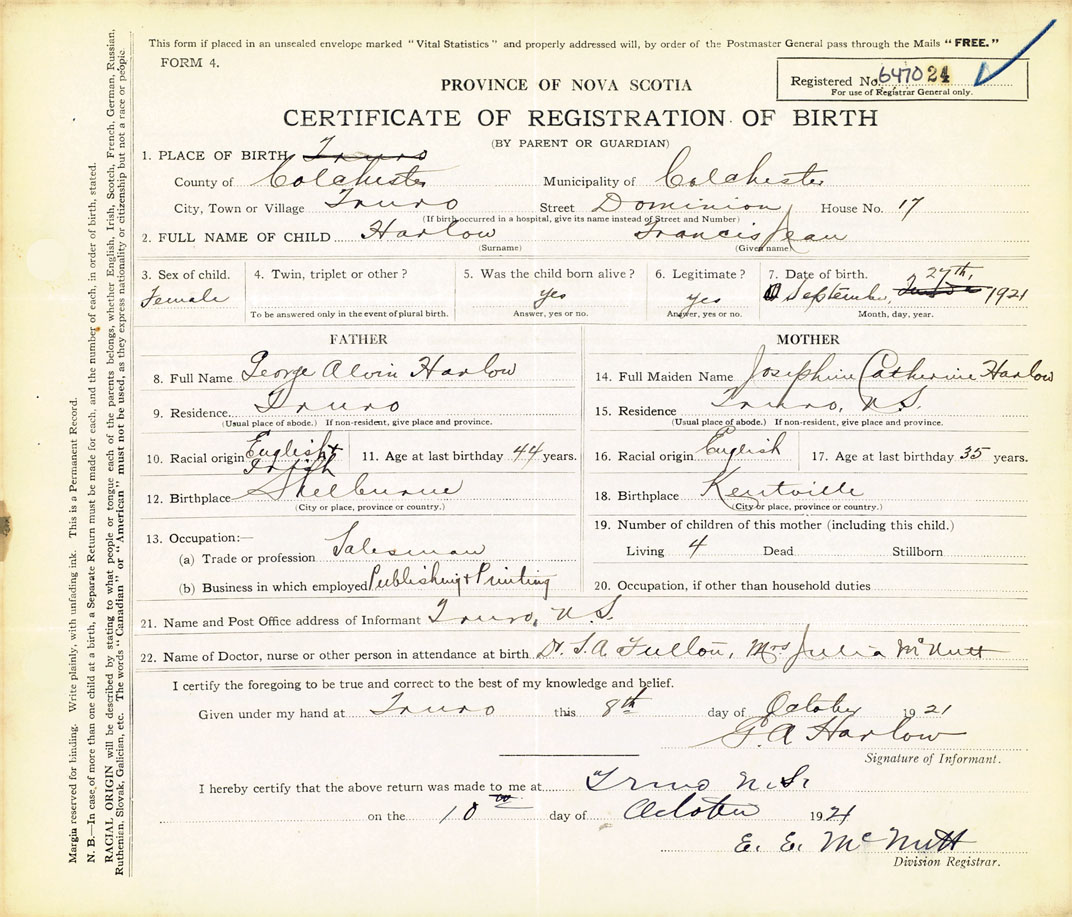 This form if placed in an unsealed envelope marked "Vital Statistics" and properly addressed will, by order of the Postmaster General pass through the Mails "FREE."
FORM 4.
Registered No. 647024
For use of Registrar General only.
PROVINCE OF NOVA SCOTIA
CERTIFICATE OF REGISTRATION OF BIRTH
(BY PARENT OR GUARDIAN)
1. PLACE OF BIRTH Truro
County of Colchester Municipality of Colchester
City, Town or Village Truro Street Dominion House No. 17
(If birth occurred in a hospital, give its name instead of Street and Number)
2. FULL NAME OF CHILD Harlow Francis Jean
(Surname) (Given name)
3. Sex of child. 4. Twin, triplet or other? 5. Was the child born alive? 6. Legitimate? 7. Date of birth.
Female yes yes September 27th, 1921
To be answered only in the event of plural birth. Answer, yes or no. Answer, yes or no. Month, day, year.
FATHER MOTHER
8. Full Name George Alvin Harlow 14. Full Maiden Name Josephine Catherine Harlow
9. Residence Truro 15. Residence Truro, N.S.
(Usual place of abode.) If non-resident, give place and province. (Usual place of abode.) If non-resident, give place and province.
10. Racial origin English + Irish 11. Age at last birthday 44 years. 16. Racial origin English 17. Age at last birthday 35 years.
12. Birthplace Shelburne 18. Birthplace Kentville
(City or place, province or country.) (City or place, province or country.)
13. Occupation:— 19. Number of children of this mother (including this child.)
(a) Trade or profession Salesman Living 4 Dead Stillborn
(b) Business in which employed Publishing + Printing 20. Occupation, if other than household duties
21. Name and Post Office address of Informant Truro, N.S.
22. Name of Doctor, nurse or other person in attendance at birth Dr. S.A. Fulton, Mrs Julia McNutt
I certify the foregoing to be true and correct to the best of my knowledge and belief.
Given under my hand at Truro this 8th day of October 1921
G.A Harlow
Signature of Informant.
I hereby certify that the above return was made to me at Truro N.S.
on the 10th day of October 1921
E. E. McNutt
Division Registrar.
Margin reserved for binding. Write plainly, with unfading ink. This is a Permanent Record.
N. B.—In case of more than one child at a birth, a Separate Return must be made for each, and the number of each, in order of birth, stated.
RACIAL ORIGIN will be described by stating to what people or tongue each of the parents belongs, whether English, Irish, Scotch, French, German, Russian,
Ruthenian, Slovak, Galician, etc. The words "Canadian" or "American" must not be used, as they express nationality or citizenship but not a race or people.